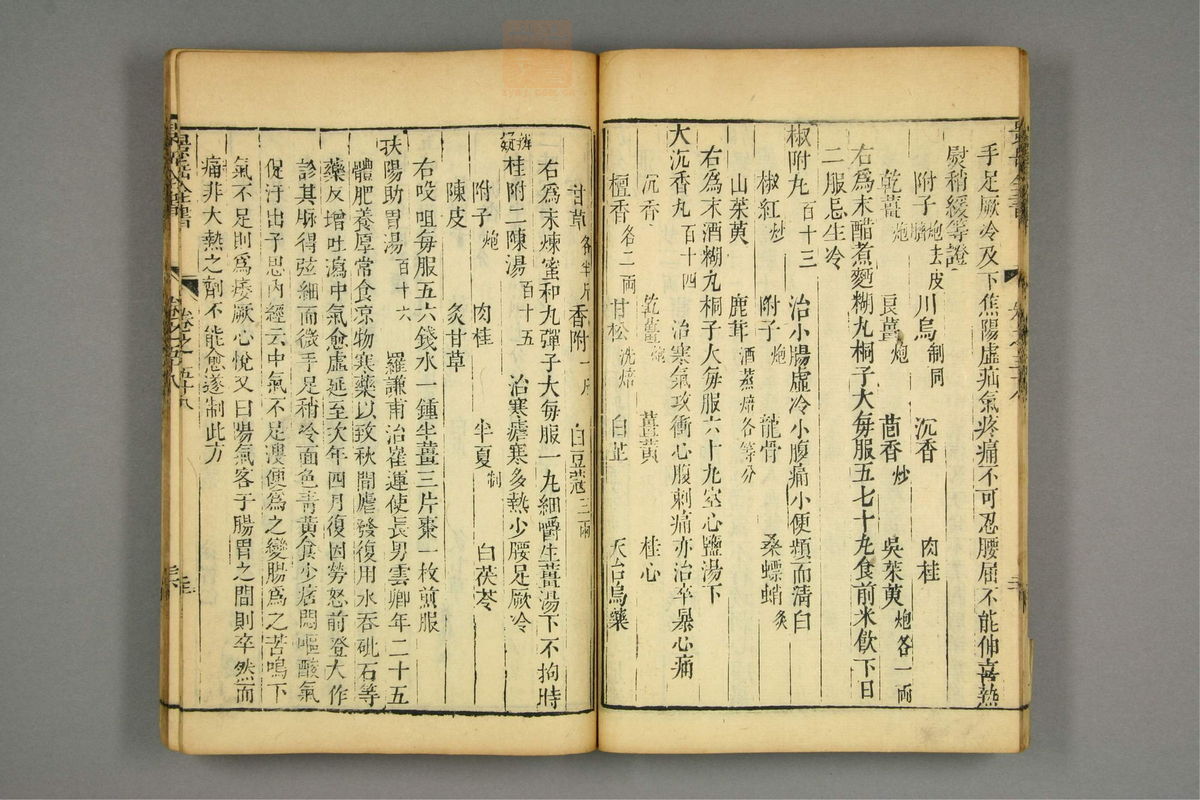 手足厥冷及下焦陽虛疝氣疼痛不可忍腰屈不能伸喜熱
熨稍緩等證
附子炮去皮臍 川烏制同 沉香 肉桂
乾薑炮 良薑炮 茴香炒 吳茱萸炮各一両
右為末醋煮麪糊丸桐子大每服五七十丸食前米飲下日
二服忌生冷
椒附丸百十三 治小腸虛冷小腹痛小便頻而清白
椒紅炒 附子炮 龍骨 桑螵蛸炙
山茱萸 鹿茸酒蒸焙各等分
右為末酒糊丸桐子大每服六十丸空心鹽湯下
大沉香丸百十四 治寒氣攻衝心腹刺痛亦治卒暴心痛
沉香 乾薑炮 薑黃 桂心
檀香各二両 甘松洗焙 白芷 天台烏藥
甘草各半斤 香附一斤 白豆蔻三兩
右為末煉蜜和丸彈子大每服一丸細嚼生薑湯下不拘時
辨疑桂附二陳湯百十五 治寒瘧寒多熱少腰足厥冷
附子炮 肉桂 半夏制 白茯苓
陳皮 炙甘草
右㕮咀每服五六錢水一鍾半薑三片棗一枚煎服
扶陽助胃湯百十六 羅謙甫治崔運使長男雲卿年二十五
體肥養厚常食凉物寒藥以致秋間瘧發復用水吞砒石等
藥反增吐瀉中氣愈虛延至次年四月復因勞怒前證大作
診其脈得弦細而微手足稍冷面色青黃食少痞悶嘔酸氣
促汗出予思內經云中氣不足溲便為之變腸為之苦鳴下
氣不足則為痿厥心悗又曰陽氣客于腸胃之間則卒然而
痛非大熱之劑不能愈遂制此方